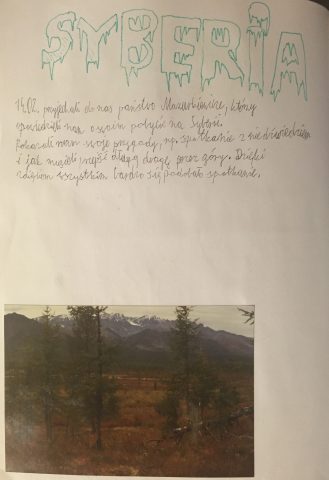 SYBERIA
14.02. przyjechali do nas państwo Mazurkiewicz, którzy
opowiedzieli nam o swoim pobycie na Syberii.
Pokazali nam swoje przygody, np. spotkanie z niedźwiedziem
i jak musieli przejść długą drogę przez góry. Dzięki
zdjęciom wszystkim bardzo się podobało spotkanie.